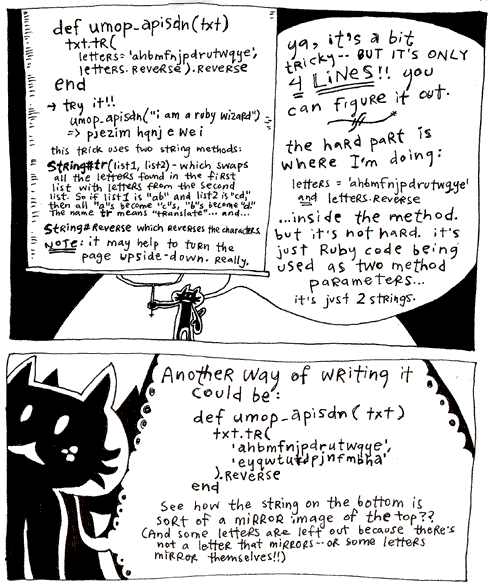 def umop_apisdn(txt)
txt.tr(
letters = 'ahbmfnjpdrutwqye',
letters.reverse).reverse
end
→ try it!!
umop_apisdn("i am a ruby wizard")
=> pjezim hqnj e we i
this trick uses two string methods:
String#tr(list1, list2) - which swaps
all the letters found in the first
list with letters from the second
list. So if list1 is "ab" and list2 is "cd,"
then all "a"s become "c"s, "b"s become "d."
The name tr means "translate"... and...
String#reverse which reverses the characters.
NOTE: it may help to turn the
page upside-down. Really.
ya, it's a bit
tricky -- BUT IT'S ONLY
4 LINES!! you
can figure it out.
the hard part is
where I'm doing:
letters = 'ahbmfnjpdrutwqye'
and letters.reverse
...inside the method.
but it's not hard. it's
just Ruby code being
used as two method
parameters...
it's just 2 strings.
Another way of writing it
could be:
def umop_apisdn(txt)
txt.tr(
'ahbmfnjpdrutwqye',
'eyqwturdpjnfmbha'
).reverse
end
See how the string on the bottom is
sort of a mirror image of the top??
(And some letters are left out because there's
not a letter that mirrors -- or some letters
mirror themselves!!)